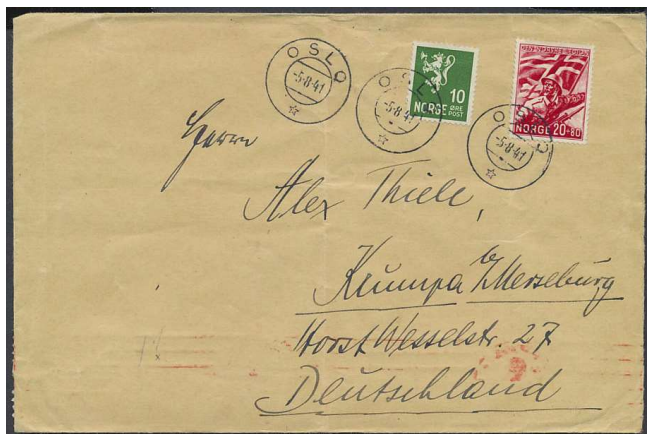 OSLO
-5·8·41
OSLO
-5·8·41
10
NORGE ØRE
POST
DEN NORSKE LEGION
NORGE 20+80
OSLO
-5·8·41
Herrn
Alex Thiele,
Krumpa b/Merseburg
Horst Wesselstr. 27
Deutschland